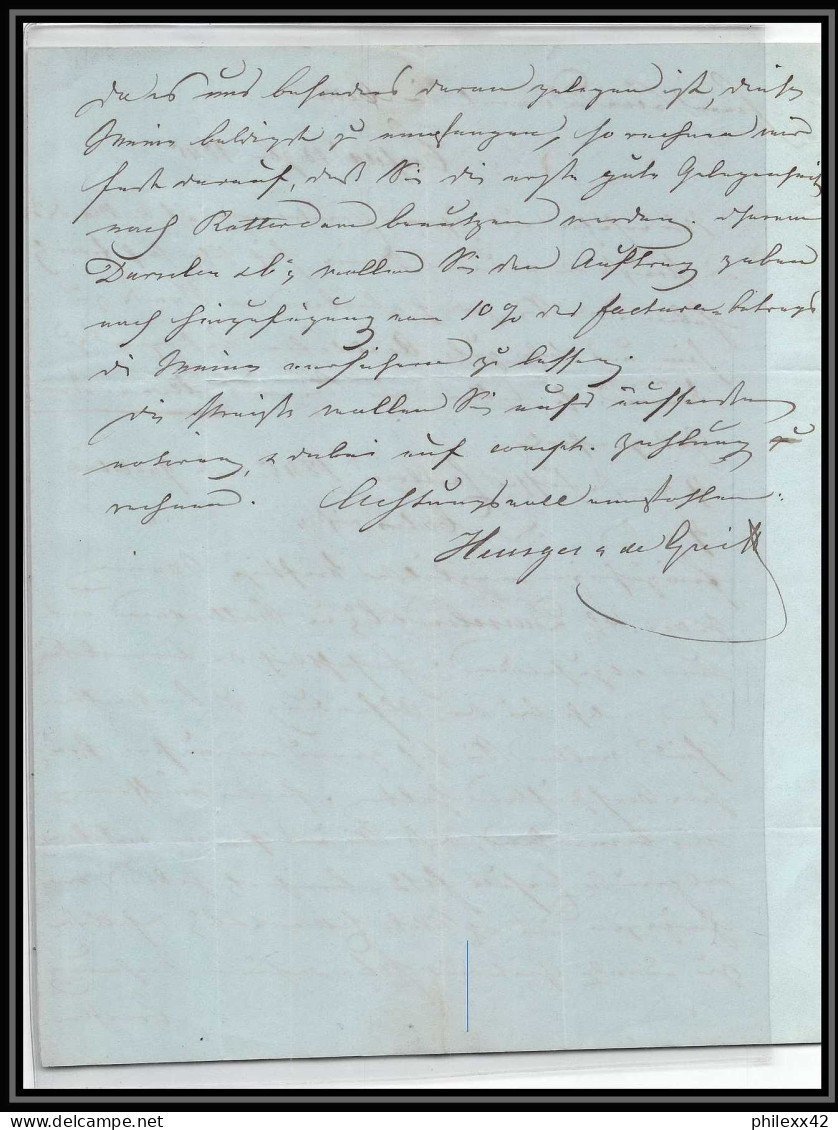 Da es uns besonders daran gelegen ist, diese
Weine baldigst zu empfangen, so rechnen wir
fest darauf, daß Sie die erste gute Gelegenheit
nach Rotterdam benutzen werden.
Derselben wollen Sie den Auftrag geben
nach Hinzufügung von 10 % des Factura-betrags
die Weine versichern zu lassen.
Die Preise wollen Sie aufs äußerste
notiren, & dabei auf compt. Zahlung zu
rechnen. Achtungsvoll empfohlen
Heusges & de Greiff
philexx42